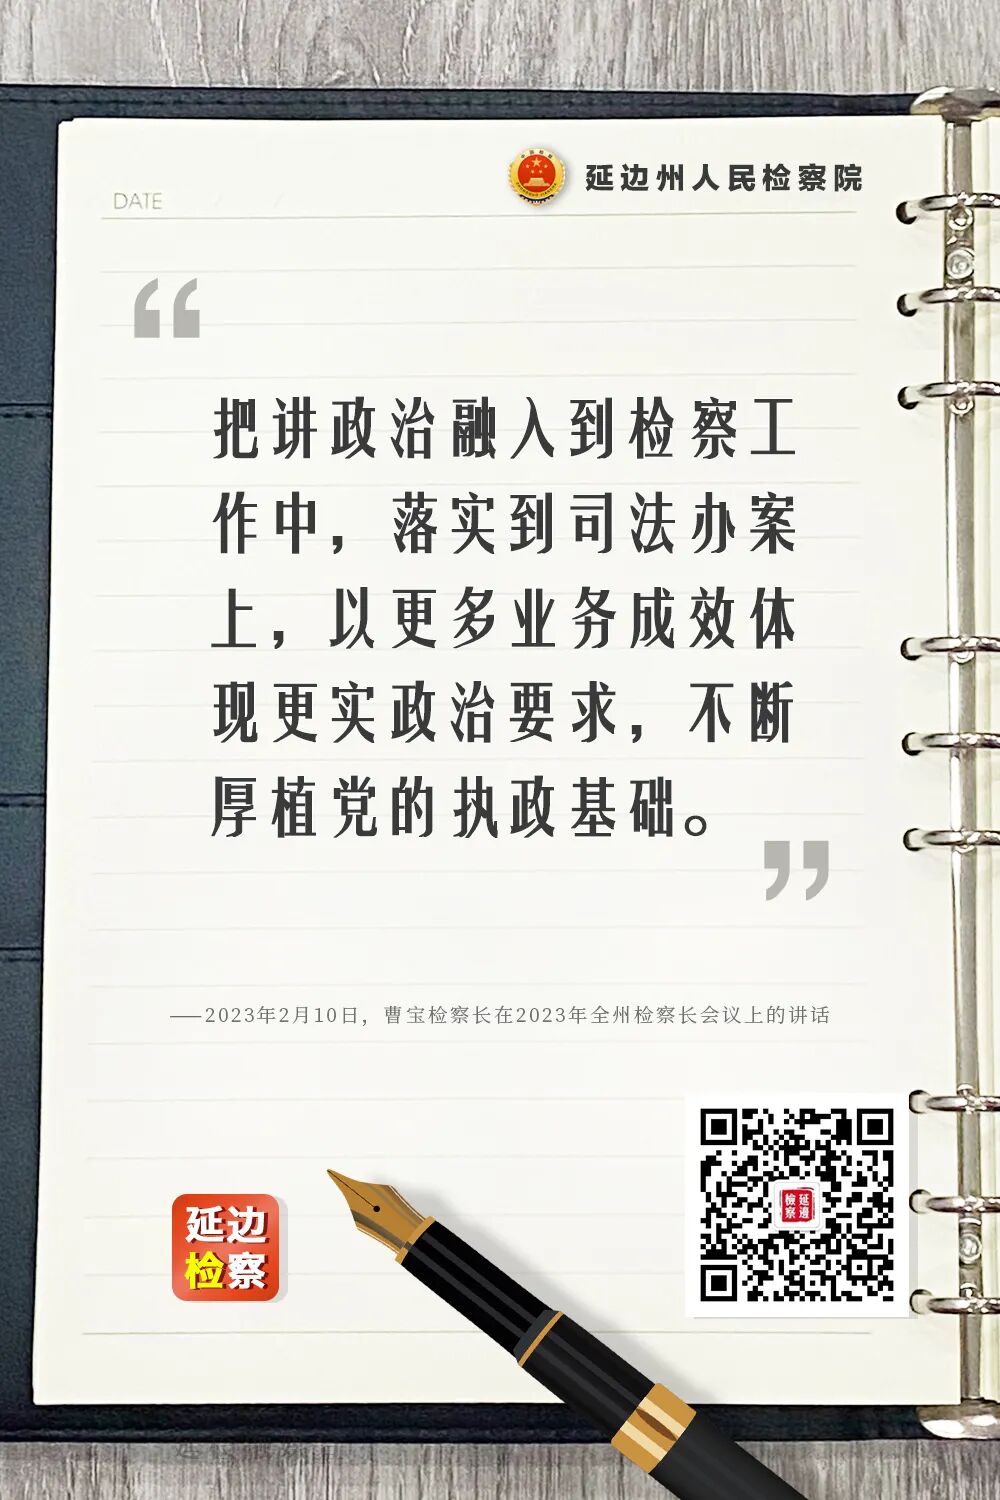 延边州人民检察院
DATE
“
把讲政治融入到检察工
作中，落实到司法办案
上，以更多业务成效体
现更实政治要求，不断
厚植党的执政基础。
”
——2023年2月10日，曹宝检察长在2023年全州检察长会议上的讲话
延边
检察
檢延
察邊